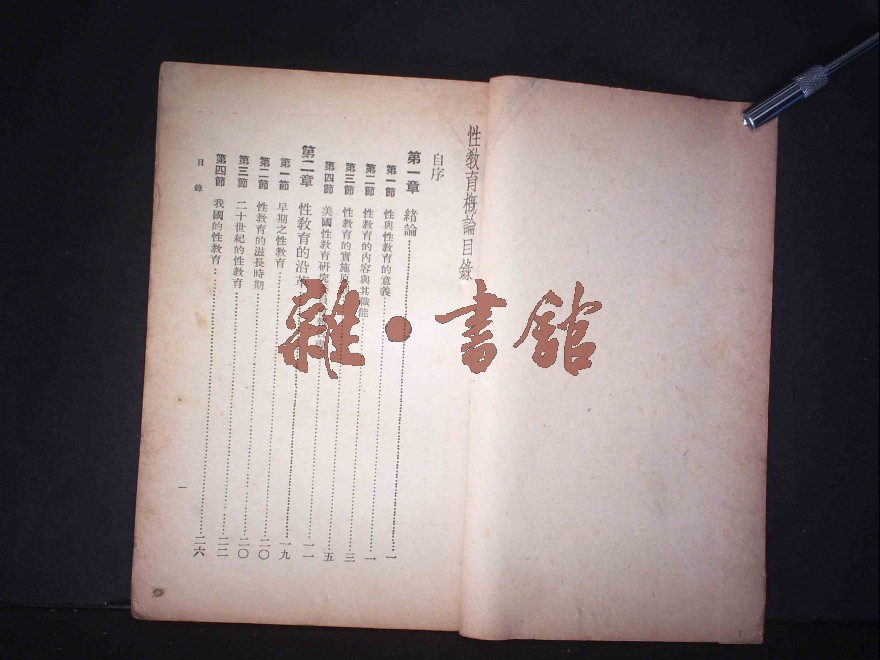 性教育概論目錄
自序
第一章 緒論…………一
第一節 性與性教育的意義…………一
第二節 性教育的內容與其職能…………三
第三節 性教育的實施原…………五
第四節 美國性教育研究…………一一
第二章 性教育的沿革…………一九
第一節 早期之性教育…………二〇
第二節 性教育的滋長時期…………二〇
第三節 二十世紀的性教育…………二二
第四節 我國的性教育…………二六
目錄 一
雜・書館